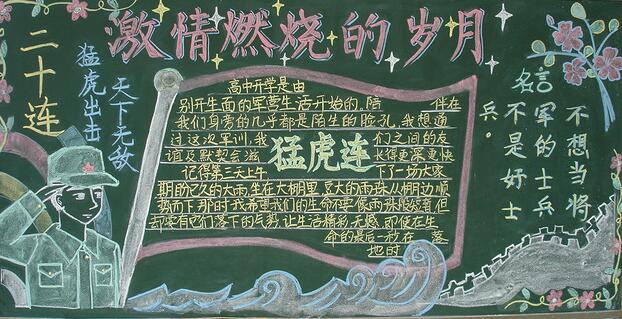 激情燃烧的岁月
二十连
猛虎出击
天下无敌
高中开学是由
别开生面的军营生活开始的.陪 伴在
我们身旁的几乎都是陌生的脸孔,我想通
过这次军训,我 们之间的友
谊及默契会滋 长得更深更快
猛虎连
记得第三天上午 下了一场大家
期盼已久的大雨,坐在大棚里,豆大的雨珠从棚边顺
势而下那时我希望我们的生命不要像雨珠般短暂但
却要有它们落下的气势,让生活精彩无憾,即便在生
命的最后一秒在 落
地时
名言
不想当将
军的士兵
不是好士
兵。